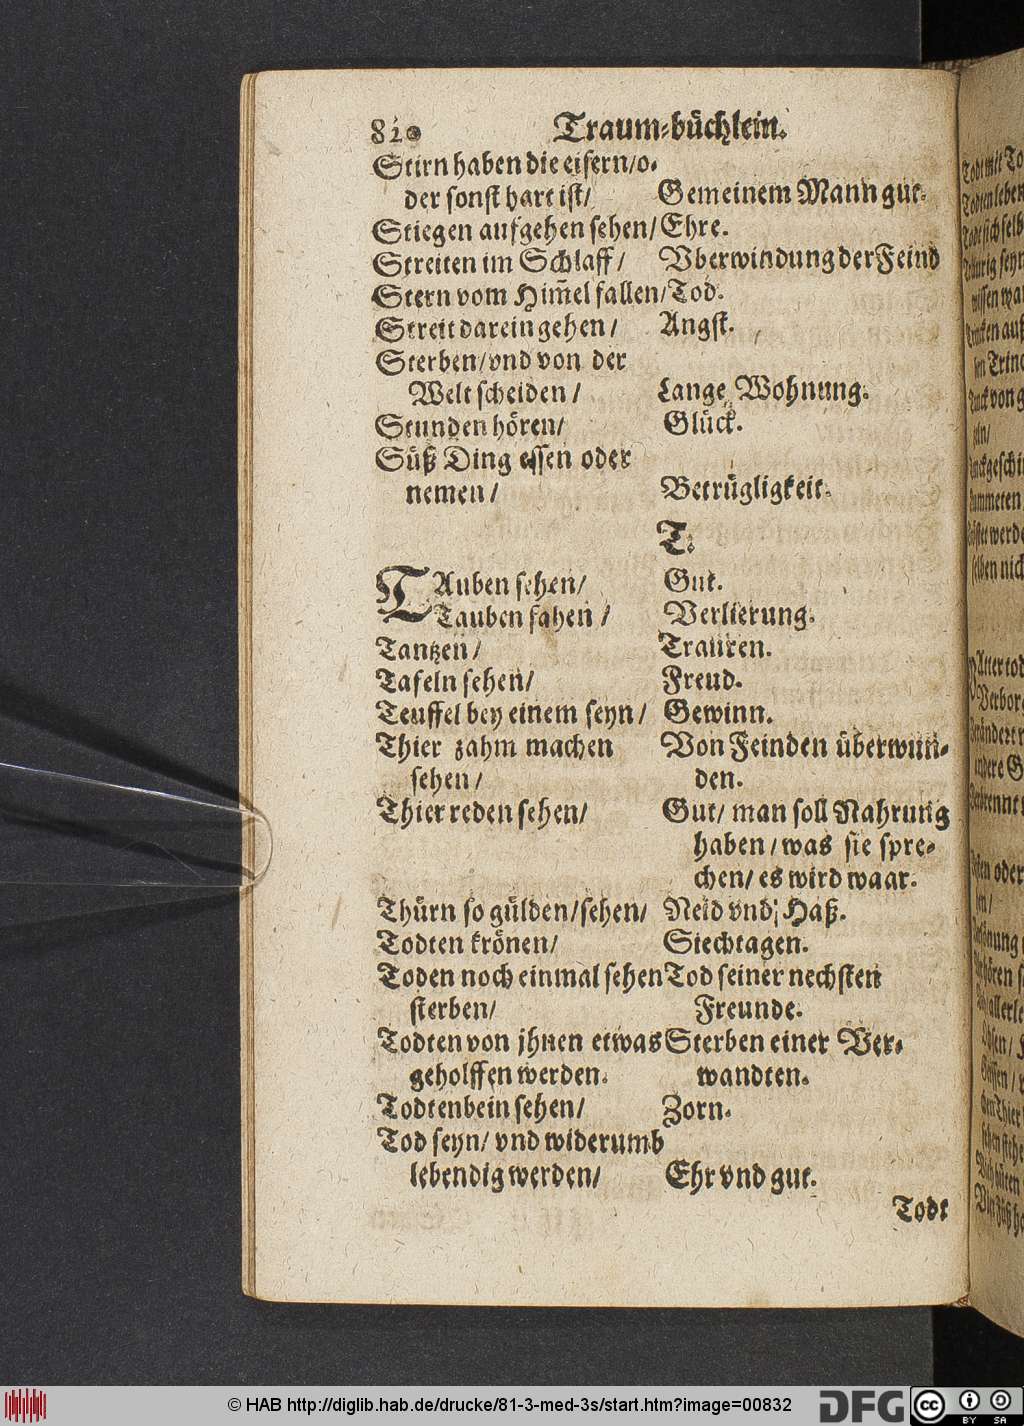 810 Traum-büchlein.
Stirn haben die eisern/ o-
der sonst hart ist/ Gemeinem Mann gut.
Stiegen aufgehen sehen/ Ehre.
Streiten im Schlaff/ Vberwindung der Feind
Stern vom Him̄el fallen/ Tod.
Streit darein gehen/ Angst.
Sterben/ vnd von der
Welt scheiden/ Lange Wohnung.
Stunden hören/ Glück.
Süß Ding essen oder
nemen/ Betrügligkeit.
T.
TAuben sehen/ Gut.
Tauben fahen/ Verlierung.
Tantzen/ Trauren.
Tafeln sehen/ Freud.
Teuffel bey einem seyn/ Gewinn.
Thier zahm machen Von Feinden überwun-
sehen/ den.
Thier reden sehen/ Gut/ man soll Nahrung
haben/ was sie spre-
chen/ es wird waar.
Thürn so gülden/ sehen/ Neid vnd Haß.
Todten krönen/ Siechtagen.
Toden noch einmal sehen Tod seiner nechsten
sterben/ Freunde.
Todten von jhnen etwas Sterben einer Ver-
geholffen werden. wandten.
Todtenbein sehen/ Zorn.
Tod seyn/ vnd widerumb
lebendig werden/ Ehr vnd gut.
Todt
© HAB http://diglib.hab.de/drucke/81-3-med-3s/start.htm?image=00832
DFG
cc
BY SA